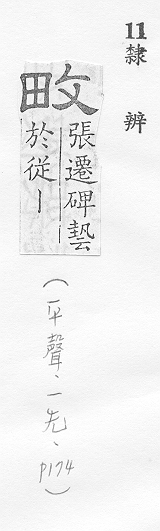 11 隸辨
畋
張遷碑蓺
於従｜
(平聲、一先、p174)